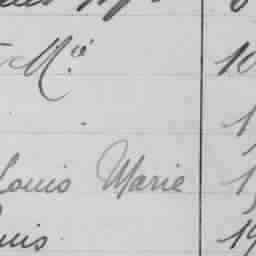 Mié 10
1
Louis Marie 1
uis 19